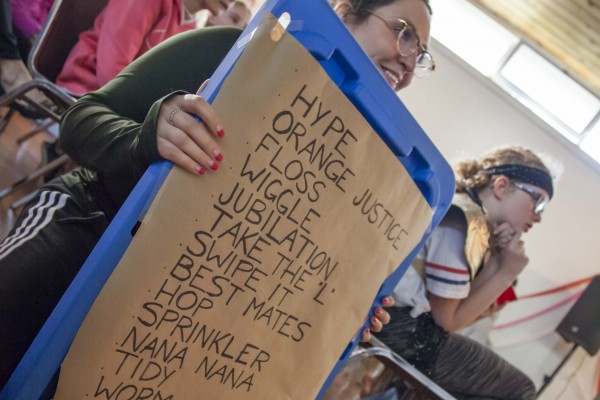 HYPE
ORANGE JUSTICE
FLOSS
WIGGLE
JUBILATION.
TAKE THE 'L'
SWIPE IT
BEST MATES
HOP
SPRINKLER
NANA NANA
TIDY
WORM